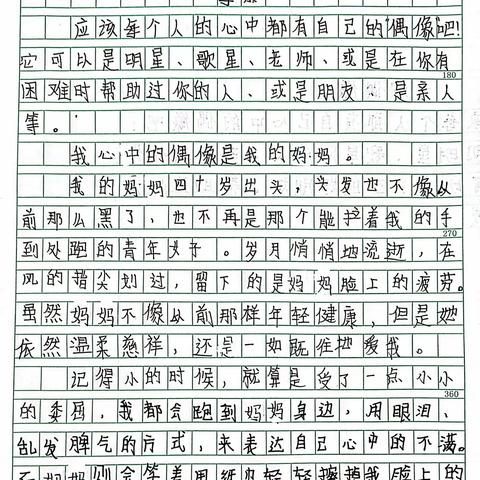 应该每个人的心中都有自己的偶像吧!
它可以是明星、歌星、老师、或是在你有
180
困难时帮助过你的人、或是朋友、是亲人
等。
我心中的偶像是我的妈妈。
我的妈妈四十岁出头，头发也不像从
前那么黑了，也不再是那个能拉着我的手
270
到处跑的青年女子。岁月悄悄地流逝，在
风的指尖划过，留下的是妈妈脸上的疲劳。
虽然妈妈不像从前那样年轻健康，但是她
依然温柔慈祥，还是一如既往地爱我。
记得小的时候，就算是受了一点小小
360
的委屈，我都会跑到妈妈身边，用眼泪、
乱发脾气的方式，来表达自己心中的不满。
而妈妈则会笑着用纸巾轻轻擦掉我脸上的